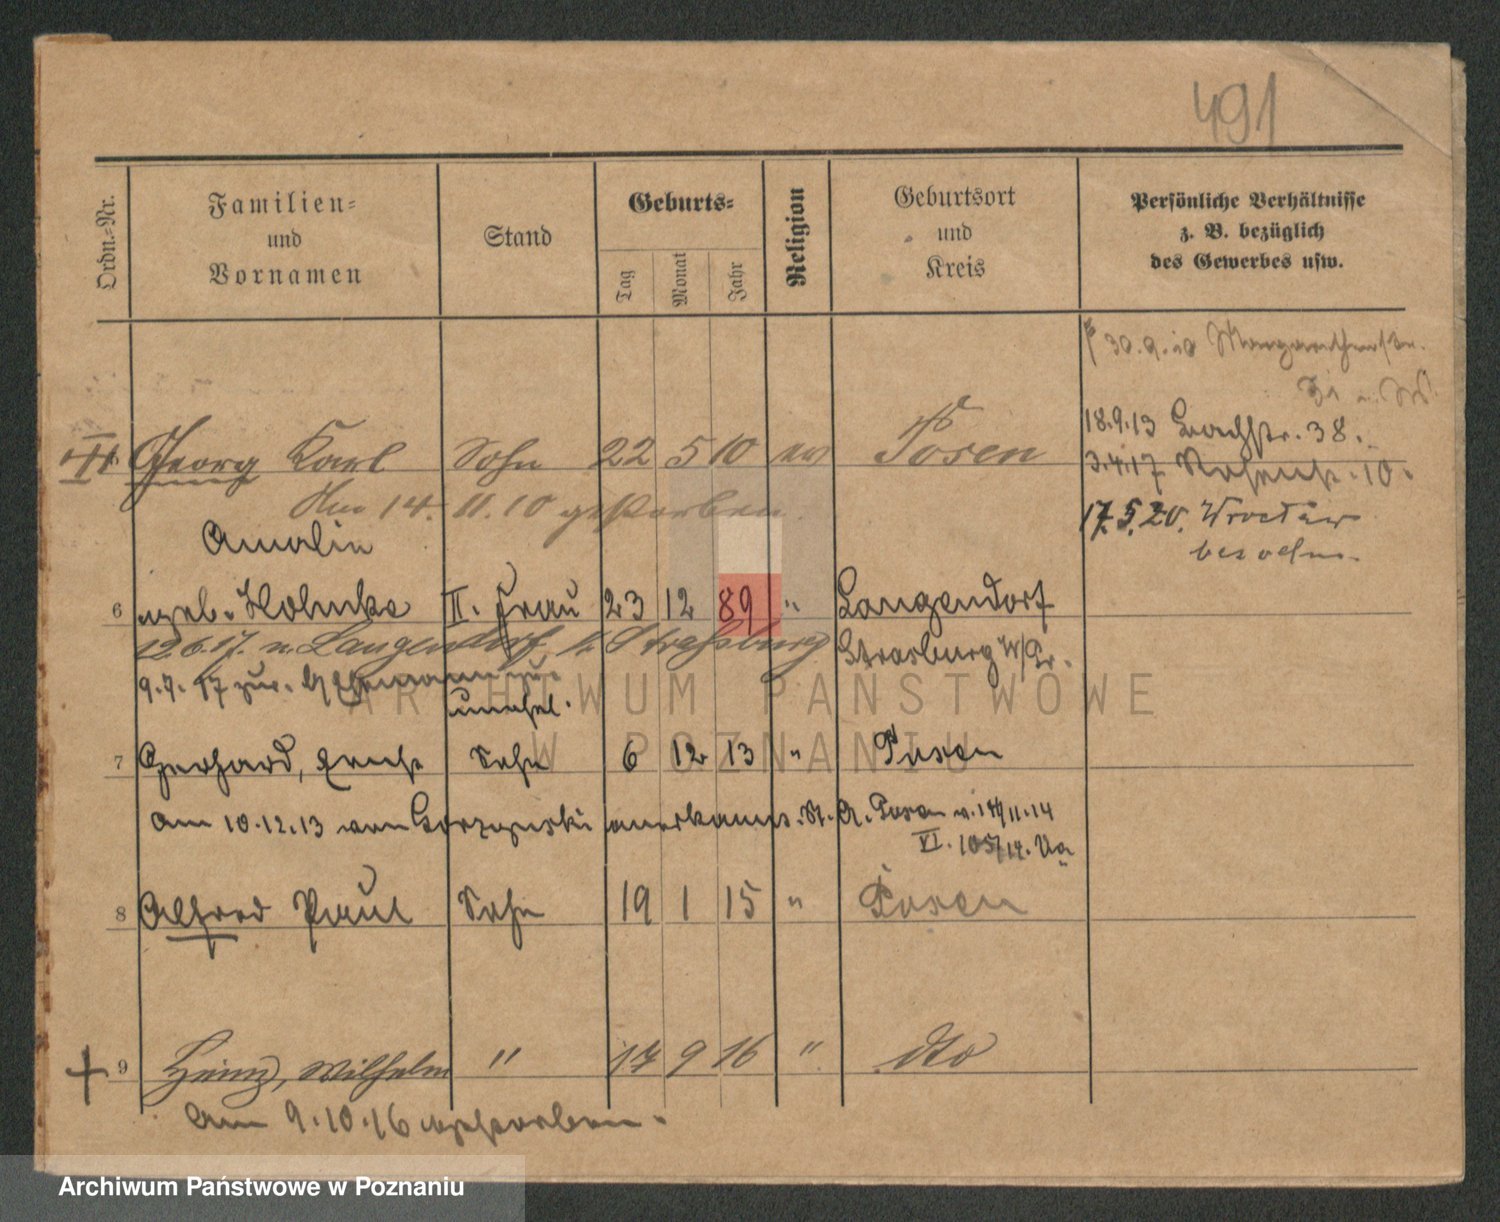 491
Ordn.-Nr.
Familien-
und
Vornamen
Stand
Geburts-
Tag
Monat
Jahr
Religion
Geburtsort
und
Kreis
Persönliche Verhältnisse
z. B. bezüglich
des Gewerbes usw.
30.9.10 Margarethenstr.
18.9.13 Bachstr. 38.
Georg Karl Sohn 22 5 10 ev Posen
3.4.17 10.
Am 14. 11. 10 gestorben.
17.5.20.
Amalie
6 geb. II. Frau 23 12 89 " Langendorf
12.6.17. n. Langendorf, Kr. Strasburg
Strasburg W/Pr.
9.7.17 zur. Ehemann
unehel.
7 Gerhard, Erich Sohn 6 12 13 " Posen
am 10.12.13 von anerkannt. St. A. Posen v. 14/11.14
VI. 105/14.
8 Alfred Paul Sohn 19 1 15 " Posen
9 Heinz, Wilhelm " 17 9 16 " dto
am 9.10.16 gestorben.
ARCHIWUM PAŃSTWOWE
W POZNANIU
Archiwum Państwowe w Poznaniu